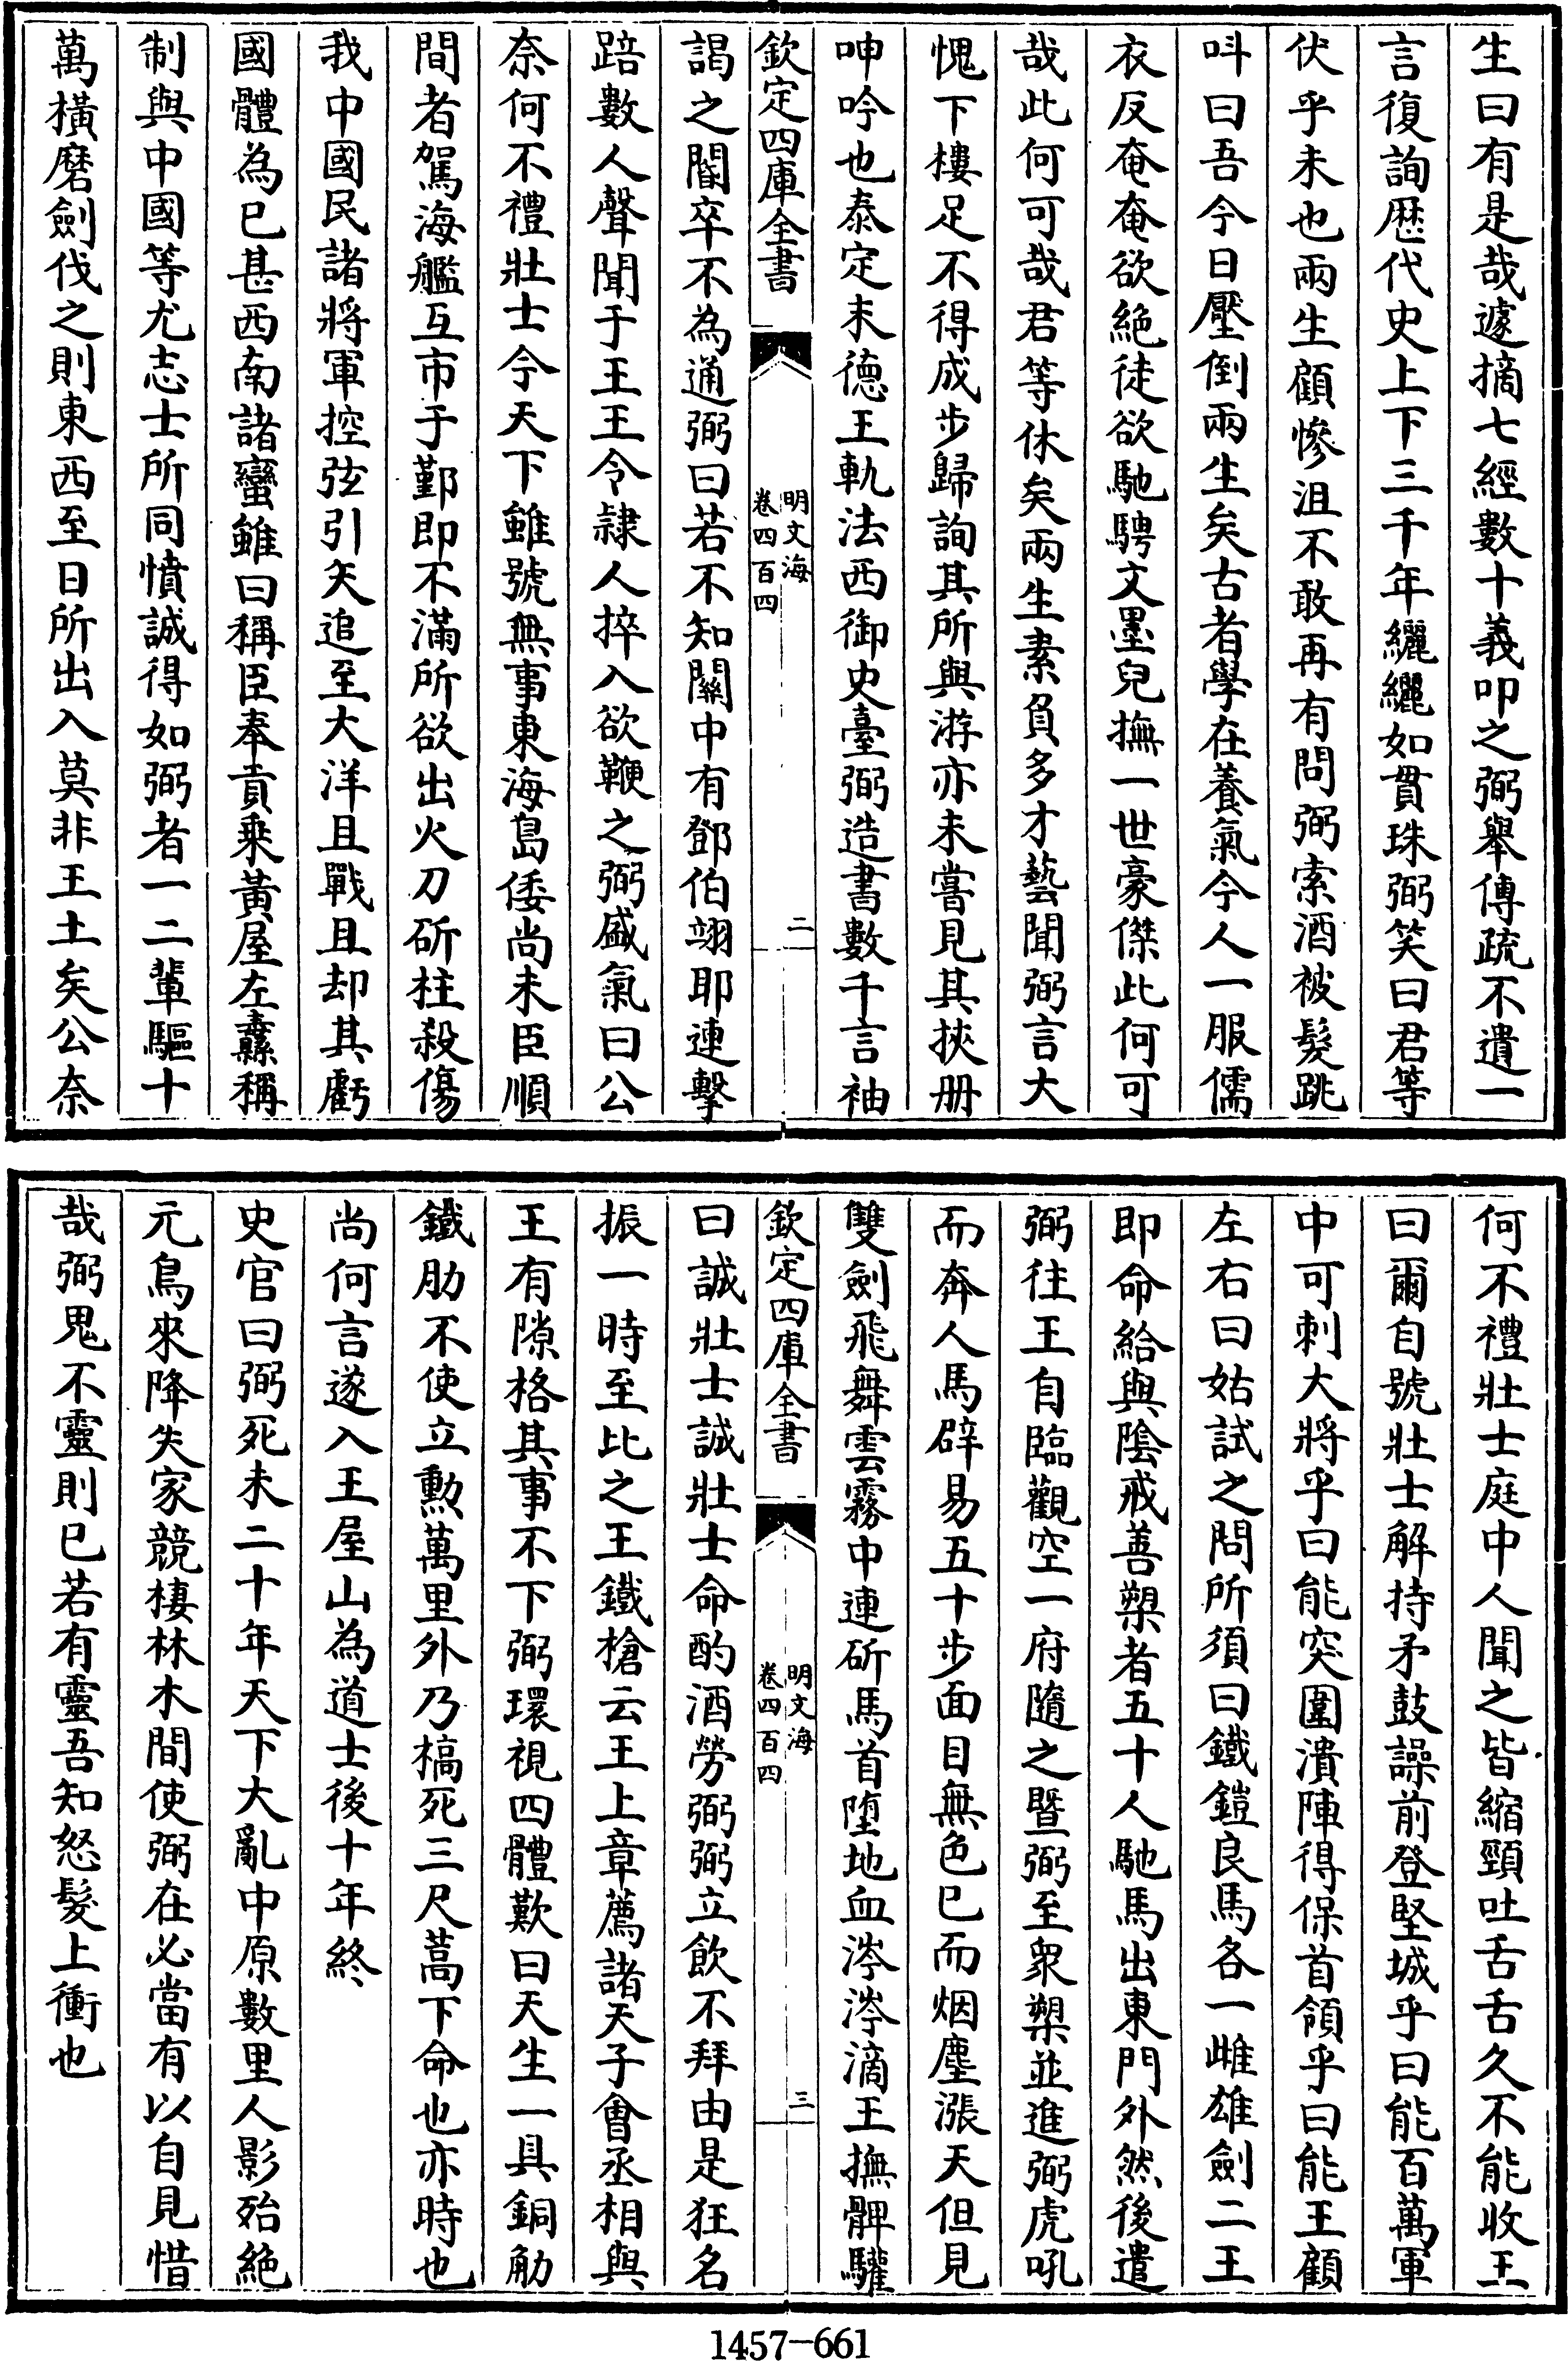 生曰有是哉遽摘七經數十義叩之弼舉傳疏不遺一
言復詢歴代史上下三千年纚纚如貫珠弼笑曰君等
伏乎未也兩生顧慘沮不敢再有問弼索酒被髮跳
呌曰吾今日壓倒兩生矣古者學在養氣今人一服儒
衣反奄奄欲絶徒欲馳騁文墨兒撫一世豪傑此何可
哉此何可哉君等休矣兩生素負多才藝聞弼言大
愧下樓足不得成步歸詢其所與游亦未嘗見其挾册
呻吟也泰定末德王執法西御史臺弼造書數千言袖
欽定四庫全書
明文海
卷四百四
二
謁之閽卒不為通弼曰若不知關中有鄧伯翊耶連擊
踣數人聲聞于王王令隷人捽入欲鞭之弼盛氣曰公
奈何不禮壯士今天下雖號無事東海島倭尚未臣順
間者駕海艦互市于鄞即不滿所欲出火刀斫柱殺傷
我中國民諸將軍控弦引矢追至大洋且戰且却其虧
國體為已甚西南諸蠻雖曰稱臣奉貢乗黃屋左纛稱
制與中國等尤志士所同憤誠得如弼者一二輩驅十
萬橫磨劍伐之則東西至日所出入莫非王土矣公奈
何不禮壯士庭中人聞之皆縮頸吐舌舌久不能收王
曰爾自號壯士解持矛鼓譟前登堅城乎曰能百萬軍
中可刺大將乎曰能突圍潰陣得保首領乎曰能王顧
左右曰姑試之問所須曰鐵鎧良馬各一雌雄劍二王
即命給與陰戒善槊者五十人馳馬出東門外然後遣
弼往王自臨觀空一府隨之暨弼至衆槊並進弼虎吼
而奔人馬辟易五十步面目無色已而烟塵漲天但見
雙劍飛舞雲霧中連斫馬首墮地血涔涔滴王撫髀驩
欽定四庫全書
明文海
卷四百四
三
曰誠壯士誠壯士命酌酒勞弼弼立飲不拜由是狂名
振一時至比之王鐵槍云王上章薦諸天子會丞相與
王有隙格其事不下弼環視四體歎曰天生一具銅觔
鐵肋不使立勲萬里外乃槁死三尺蒿下命也亦時也
尚何言遂入王屋山為道士後十年終
史官曰弼死未二十年天下大亂中原數里人影殆絶
元鳥來降失家競棲林木間使弼在必當有以自見惜
哉弼鬼不靈則已若有靈吾知怒髮上衝也
1457-661